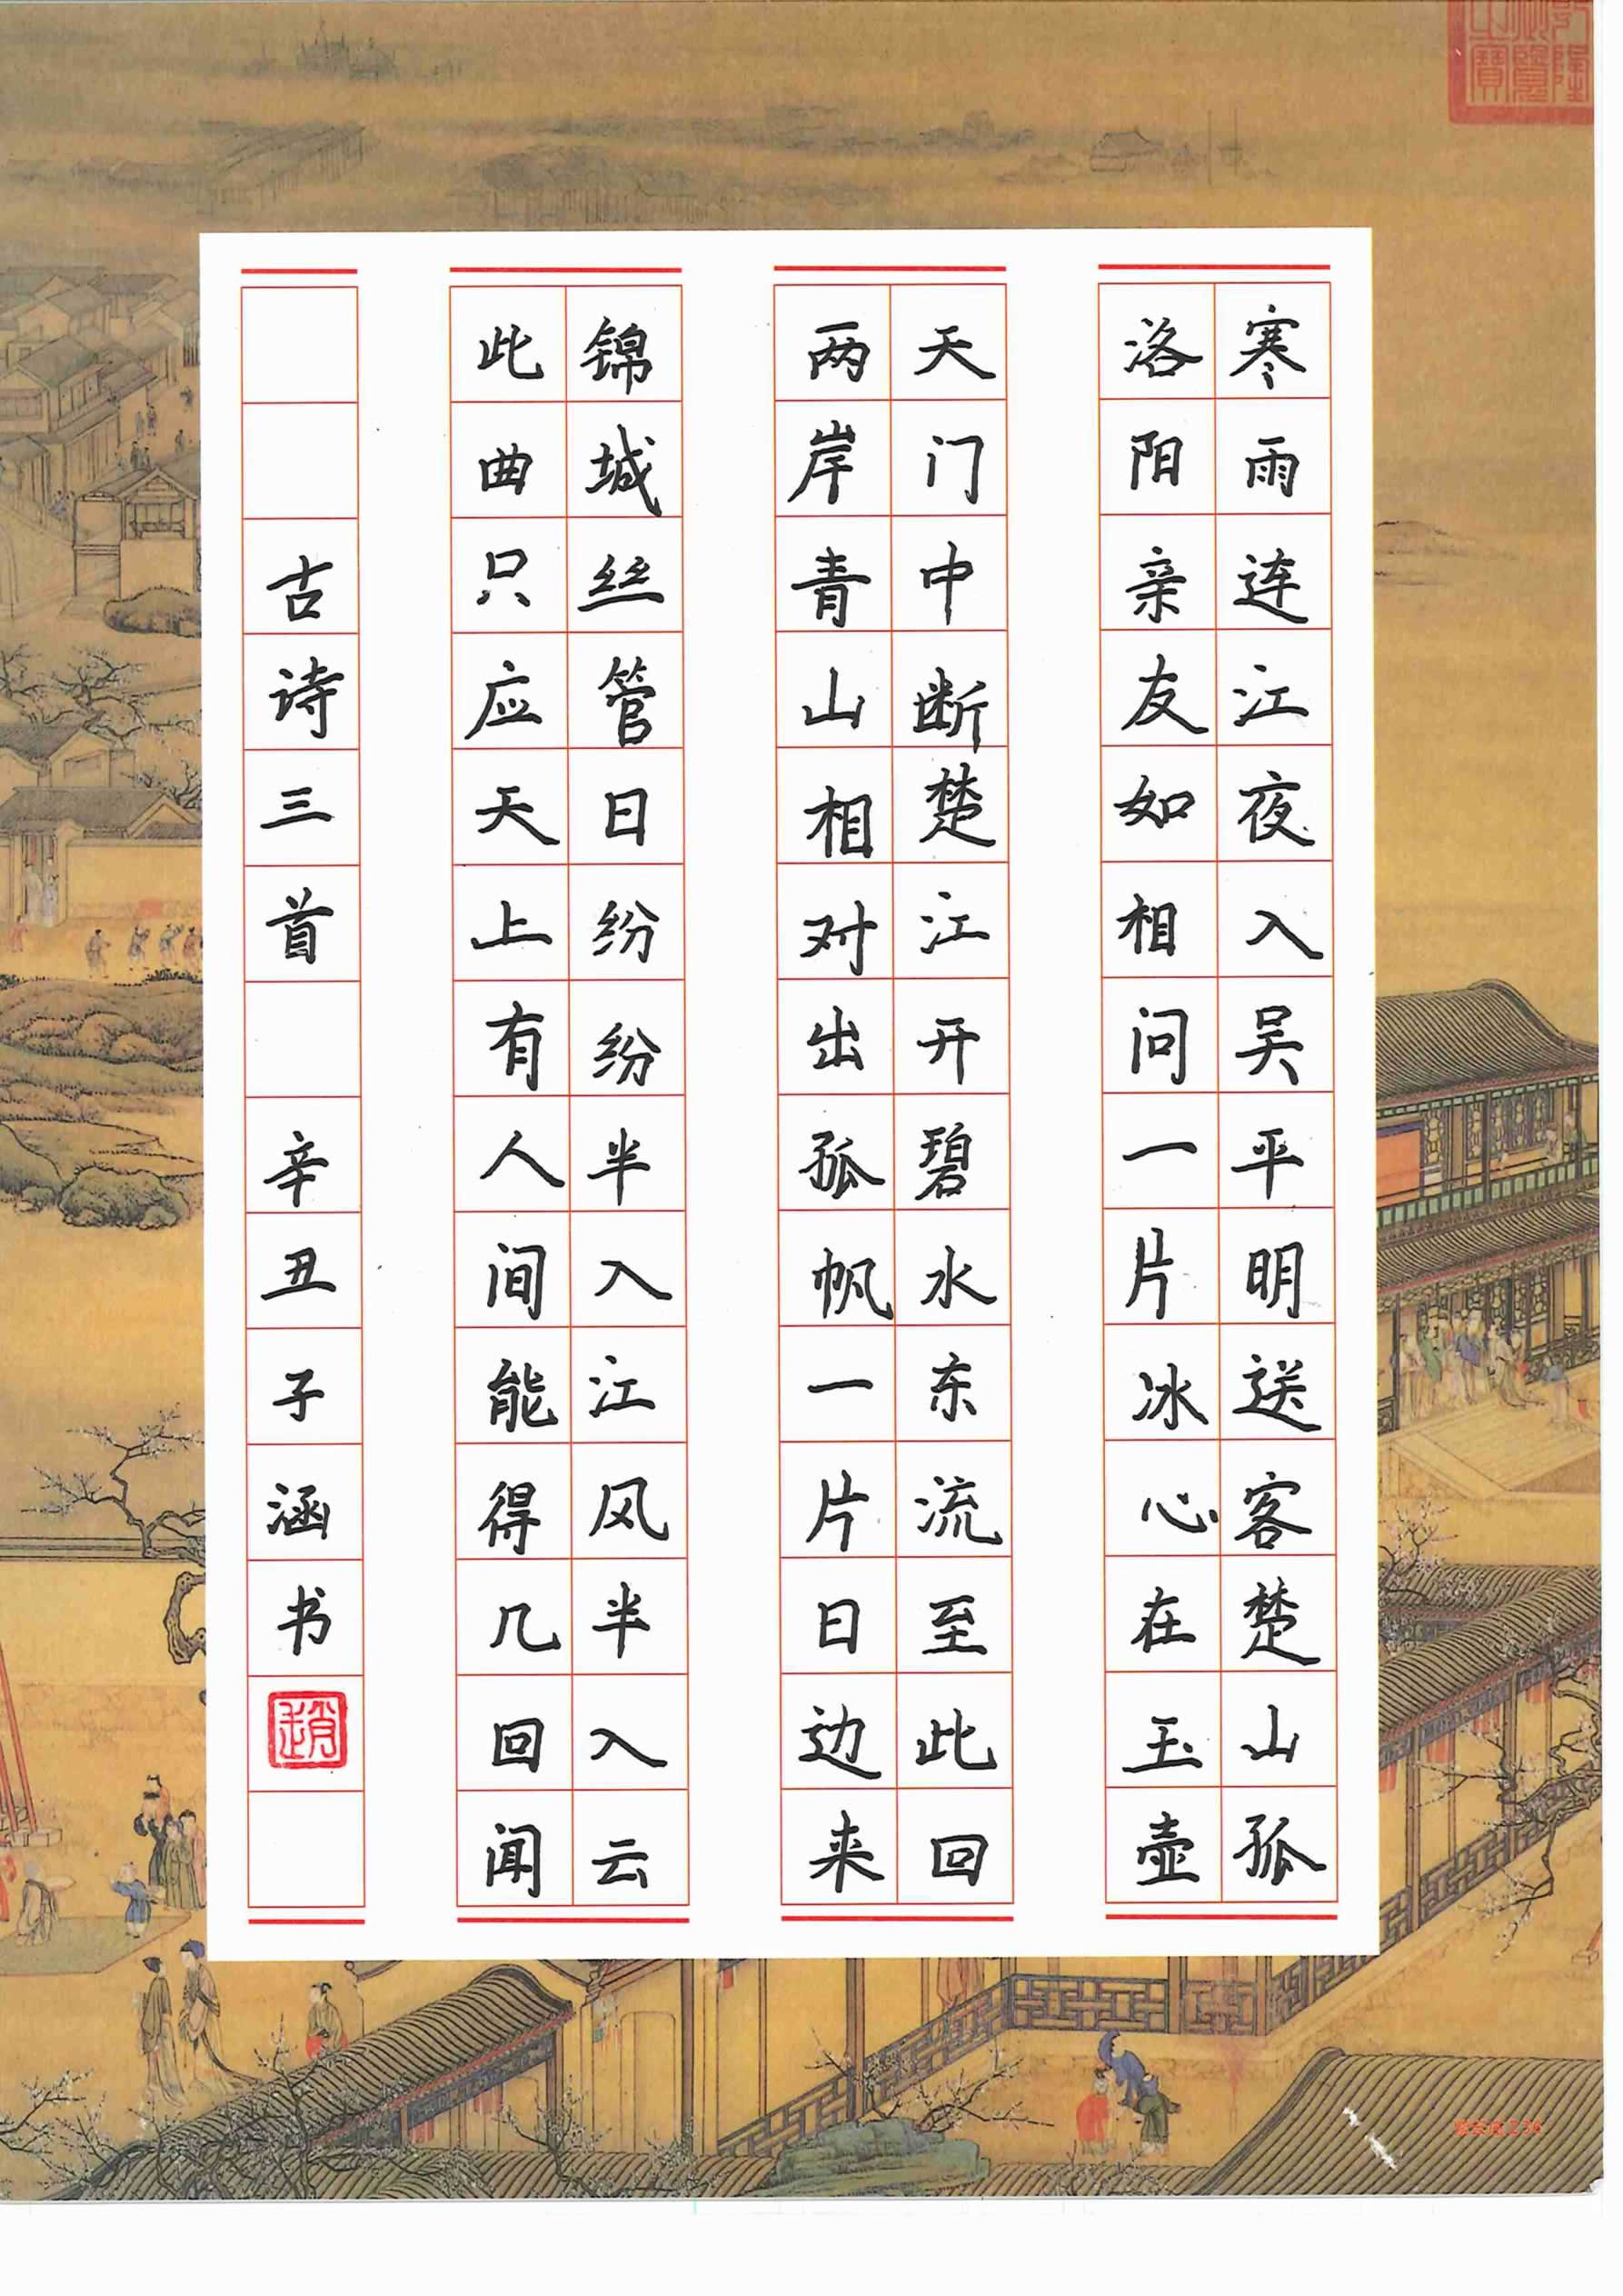 寒雨连江夜入吴平明送客楚山孤
洛阳亲友如相问一片冰心在玉壶
天门中断楚江开碧水东流至此回
两岸青山相对出孤帆一片日边来
锦城丝管日纷纷半入江风半入云
此曲只应天上有人间能得几回闻
古诗三首 辛丑子涵书
趙